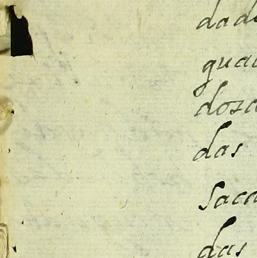 dad
gua
dosa
das
saca
das